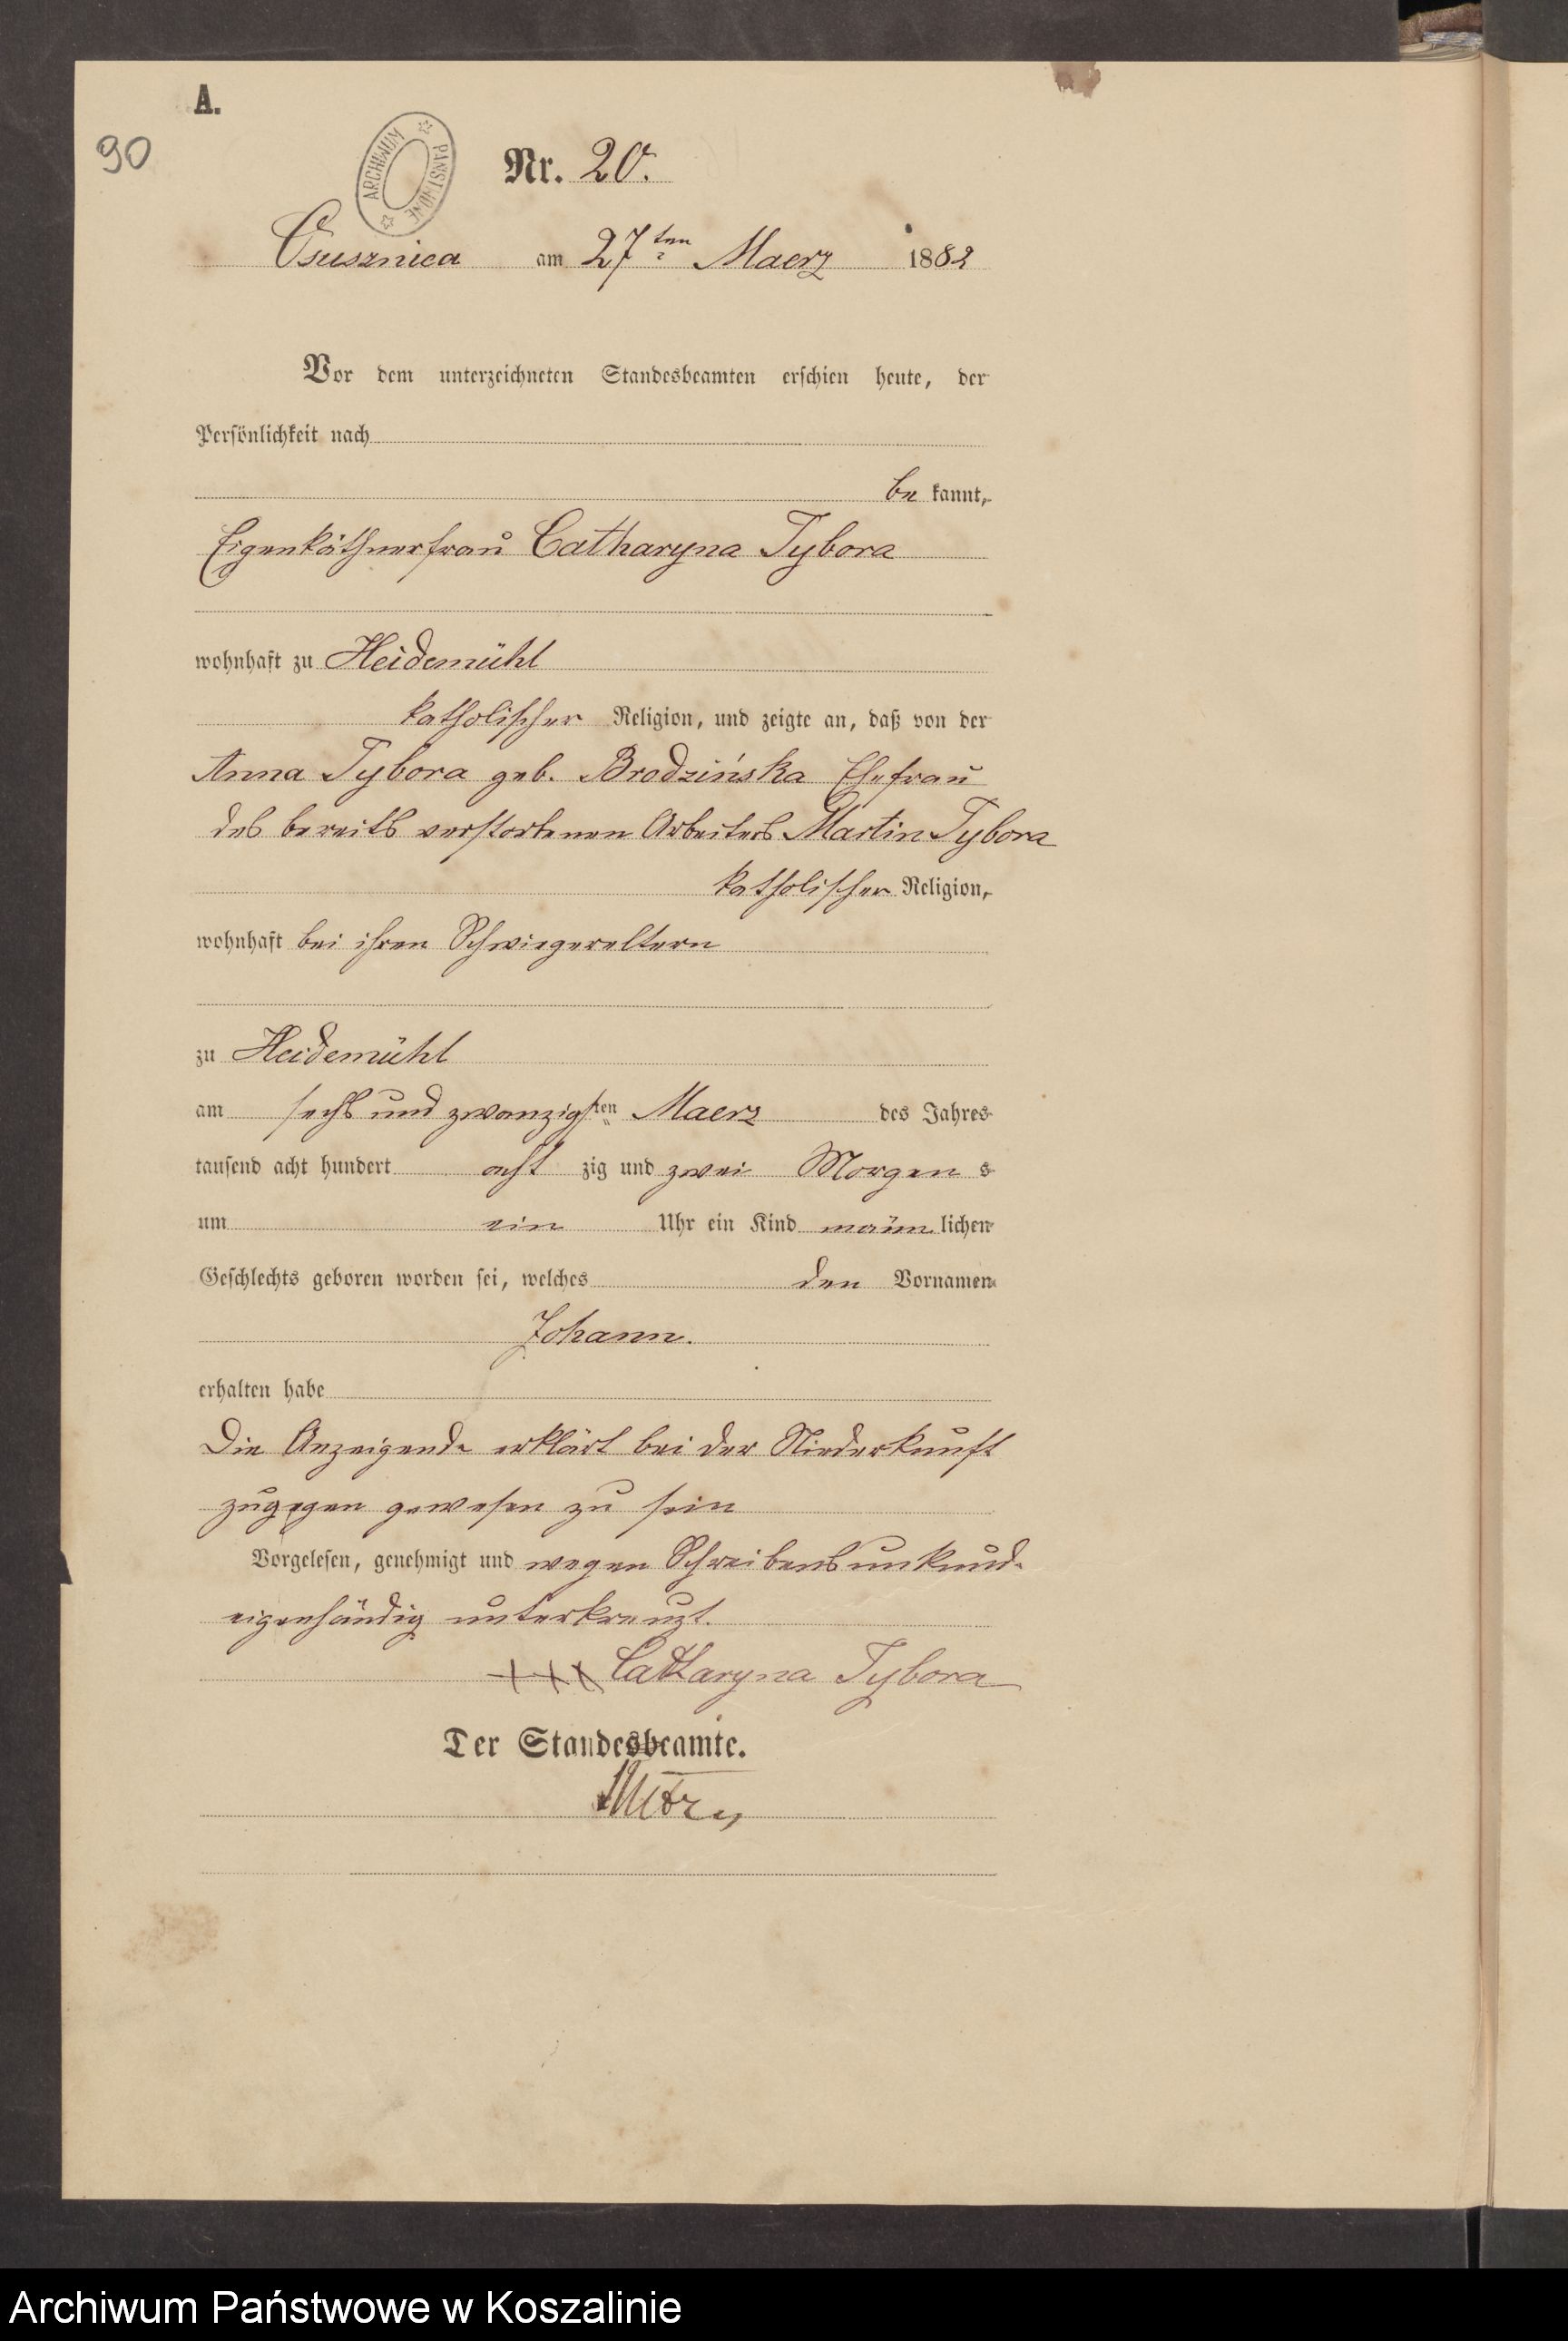 A.
90
ARCHIWUM PAŃSTWOWE
Nr. 20.
Osusznica am 27ten Maerz 1882
Vor dem unterzeichneten Standesbeamten erschien heute, der
Persönlichkeit nach
be kannt,
Eigenkäthnerfrau Catharyna Tybora
wohnhaft zu Heidemühl
katholischer Religion, und zeigte an, daß von der
Anna Tybora geb. Brodzińska Ehefrau
des bereits verstorbenen Arbeiters Martin Tybora
katholischer Religion,
wohnhaft bei ihren Schwiegereltern
zu Heidemühl
am sechs und zwanzigsten Maerz des Jahres
tausend acht hundert acht zig und zwei Morgen s
um ein Uhr ein Kind männ lichen
Geschlechts geboren worden sei, welches den Vornamen
Johann.
erhalten habe
Die Anzeigende erklärt bei der Niederkunft
zugegen gewesen zu sein
Vorgelesen, genehmigt und wegen Schreibensunkunde
eigenhändig unterkreuzt.
+++ Catharyna Tybora
Der Standesbeamte.
Archiwum Państwowe w Koszalinie